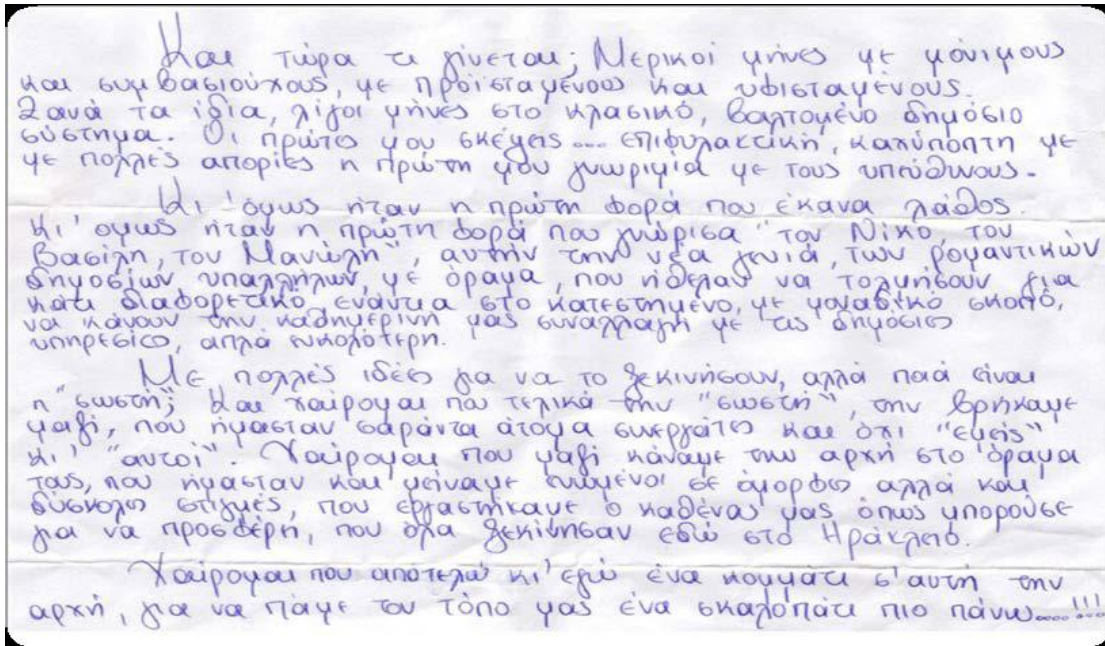 Και τώρα τι γίνεται; Μερικοί μήνες με μόνιμους
και συμβασιούχους, με προϊσταμένους και υφισταμένους.
Ξανά τα ίδια, λίγοι μήνες στο κλασικό, βαλτομένο δημόσιο
σύστημα. Οι πρώτες μου σκέψεις... επιφυλακτική, καχύποπτη με
με πολλές απορίες η πρώτη μου γνωριμία με τους υπεύθυνους.
Κι 'όμως ήταν η πρώτη φορά που έκανα λάθος.
Κι' όμως ήταν η πρώτη φορά που γνώρισα "τον Νίκο, τον
Βασίλη, τον Μανώλη", αυτήν την νέα γενιά, των ρομαντικών
δημοσίων υπαλλήλων, με όραμα, που ήθελαν να τολμήσουν για
κάτι διαφορετικό, ενάντια στο κατεστημένο, με μοναδικό σκοπό,
να κάνουν την καθημερινή μας συναλλαγή με τις δημόσιες
υπηρεσίες, απλά ευκολότερη.
Με πολλές ιδέες για να το ξεκινήσουν, αλλά ποιά είναι
η "σωστή; Και χαίρομαι που τελικά την "σωστή", την βρήκαμε
μαζί, που ήμασταν σαράντα άτομα συνεργάτες και όχι "εμείς"
κι' "αυτοί". Χαίρομαι που μαζί κάναμε την αρχή στο όραμα
τους, που ήμασταν και μείναμε ενωμένοι σε όμορφες αλλά και
δύσκολες στιγμές, που εργαστήκαμε ο καθένας μας όπως μπορούσε
για να προσφέρη, που όλα ξεκίνησαν εδώ στο Ηράκλειο.
Χαίρομαι που αποτελώ κι' εγώ ένα κομμάτι σ'αυτή την
αρχή, για να πάμε τον τόπο μας ένα σκαλοπάτι πιο πάνω......!!!